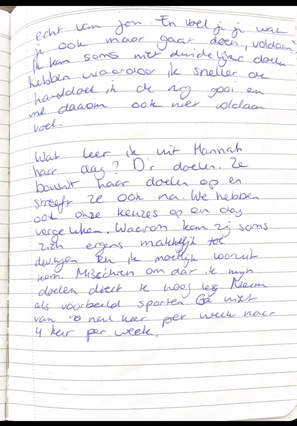 echt van jou. En voel je je wat
je ook maar gaat doen, voldaan
Ik kan soms niet duidelijke doelen
hebben waardoor ik sneller de
handdoek in de ring gooi en
me daarom ook niet voldaan
voel.
Wat leer ik uit Hannah
haar dag? D'r doelen. Ze
bouwt haar doelen op en
streeft ze ook na. We hebben
ook onze keuzes op een dag
vergeleken. Waarom kan zij soms
zich ergens makkelijk toe
dwingen en ik moeilijk vooruit
kom. Misschien om dat ik mijn
doelen direct te hoog leg. Neem
als voorbeeld sporten. Ga niet
van nul keer per week naar
4 keer per week.